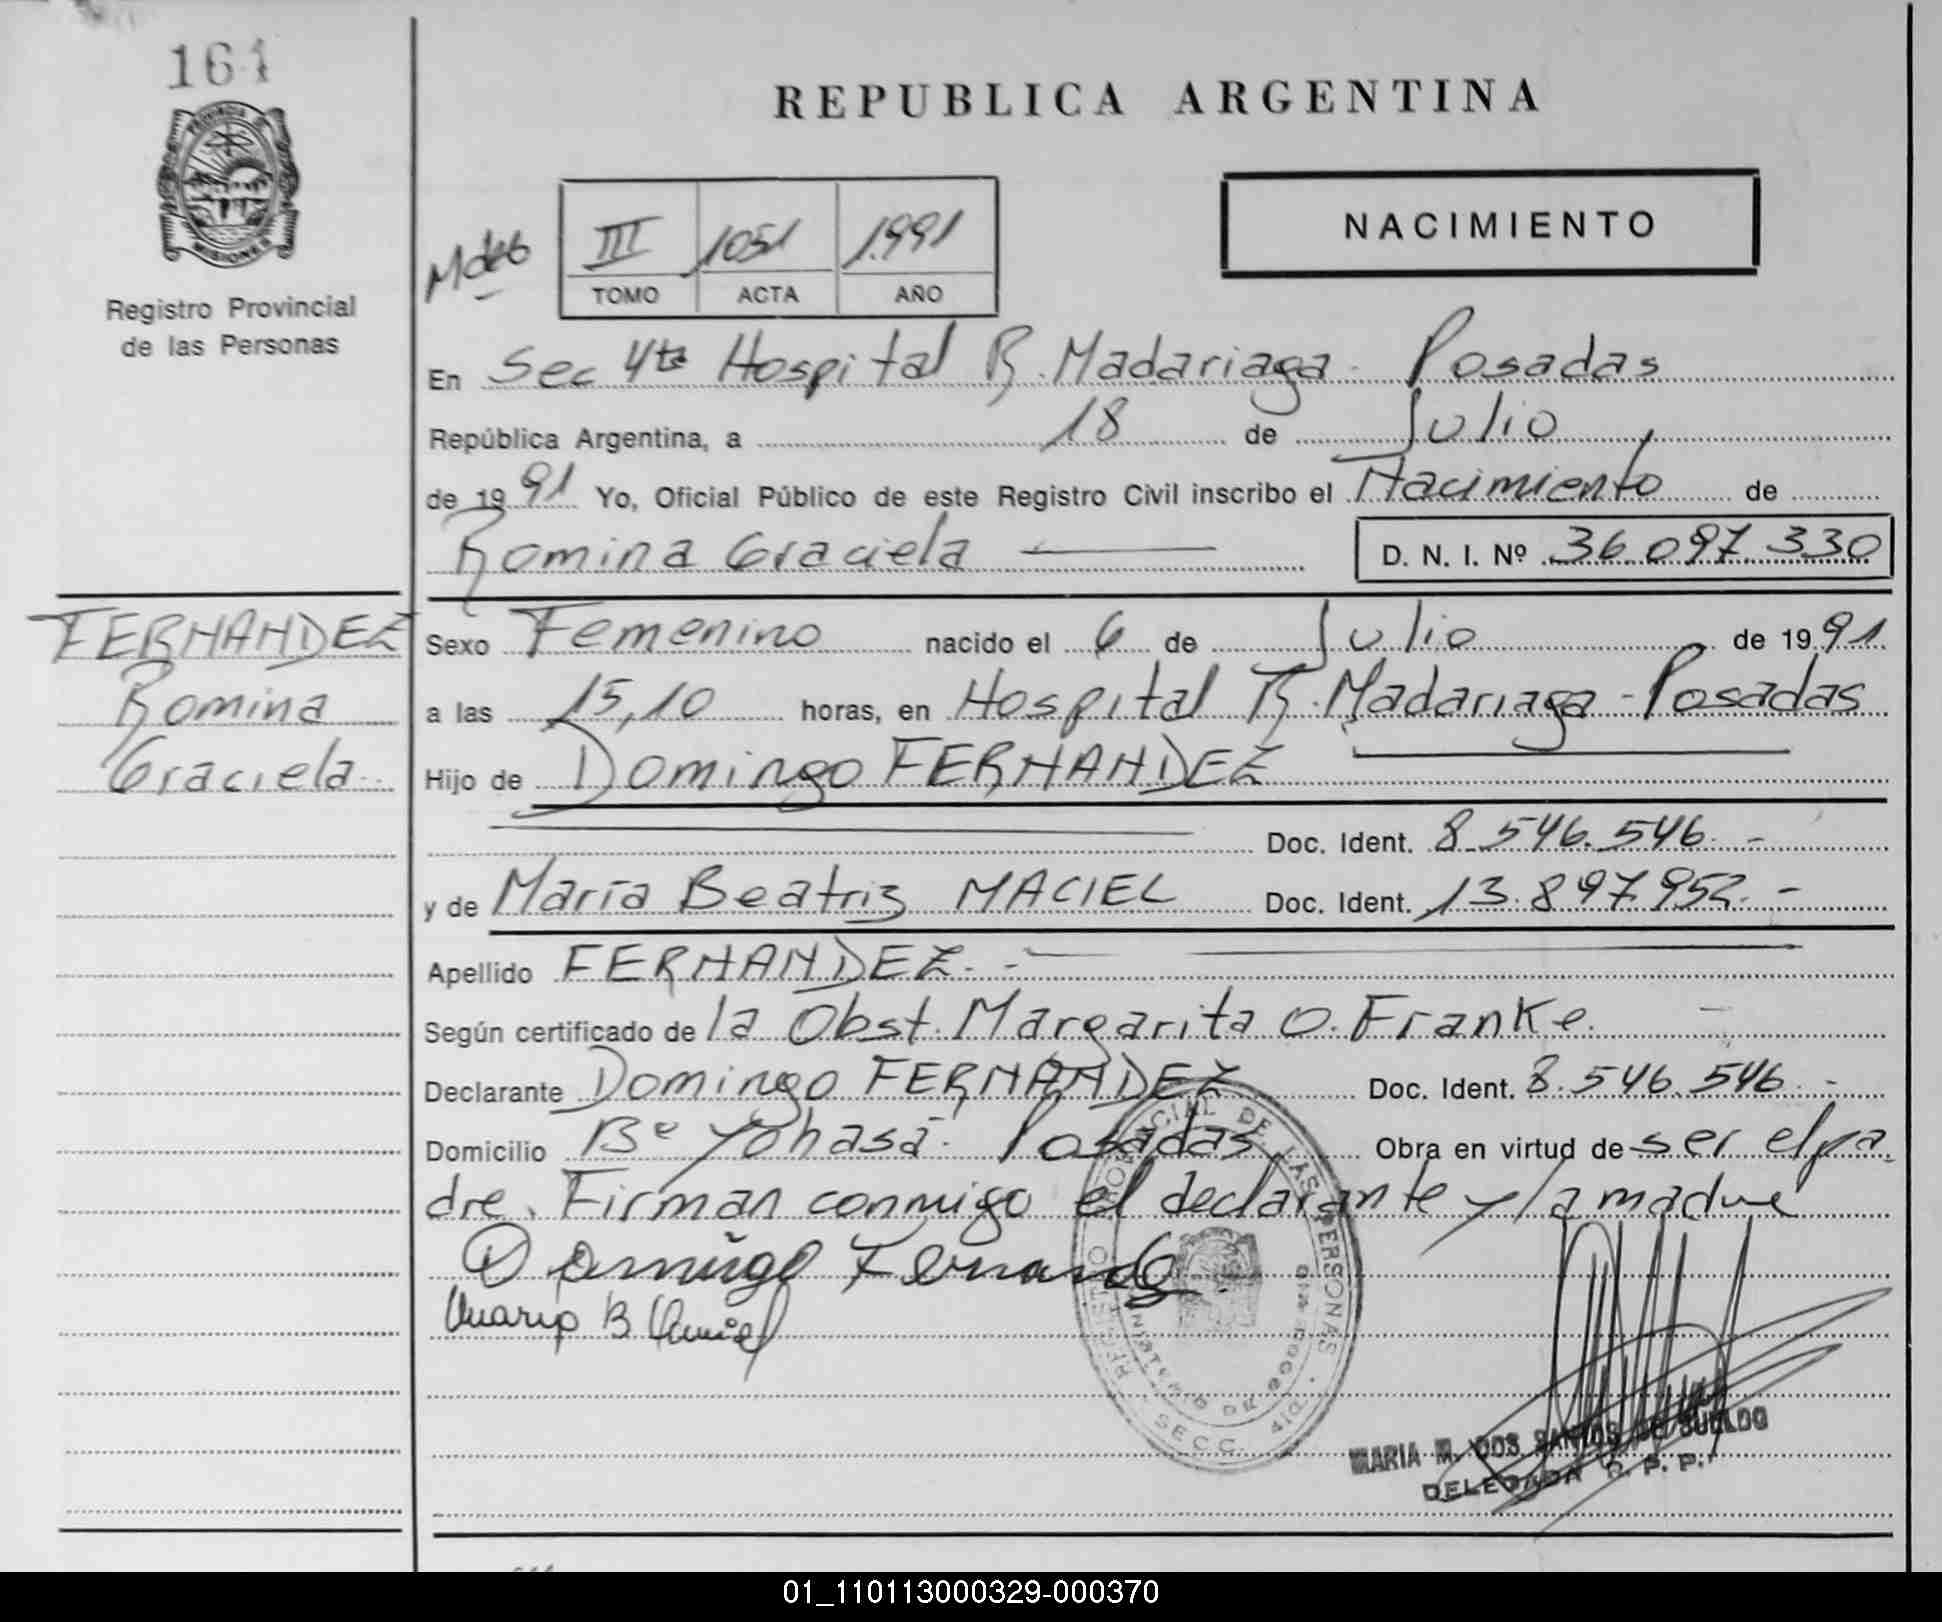 161
REPUBLICA ARGENTINA
PROVINCIA DE MISIONES
Registro Provincial
de las Personas
III 1051 1.991
TOMO ACTA AÑO
NACIMIENTO
En Sec 4ta Hospital R. Madariaga - Posadas
República Argentina, a 18 de Julio
de 1991 Yo, Oficial Público de este Registro Civil inscribo el Nacimiento de
Romina Graciela D. N. I. Nº 36.097.330
FERNANDEZ
Romina
Graciela
Sexo Femenino nacido el 6 de Julio de 1991
a las 15,10 horas, en Hospital R. Madariaga - Posadas
Hijo de Domingo FERNANDEZ
Doc. Ident. 8.546.546.-
y de María Beatriz MACIEL Doc. Ident. 13.897.952.-
Apellido FERNANDEZ.-
Según certificado de la Obst. Margarita O. Franke.
Declarante Domingo FERNANDEZ Doc. Ident. 8.546.546.-
Domicilio Bº Yohasá. Posadas Obra en virtud de ser el pa
dre. Firman conmigo el declarante y la madre
Domingo Fernandez
REGISTRO PROVINCIAL DE LAS PERSONAS
MINISTERIO DE GOBIERNO
SECC. 4ta.
MARIA M. DOS SANTOS DE SUELDO
DELEGADA R. P. P.
01_110113000329-000370